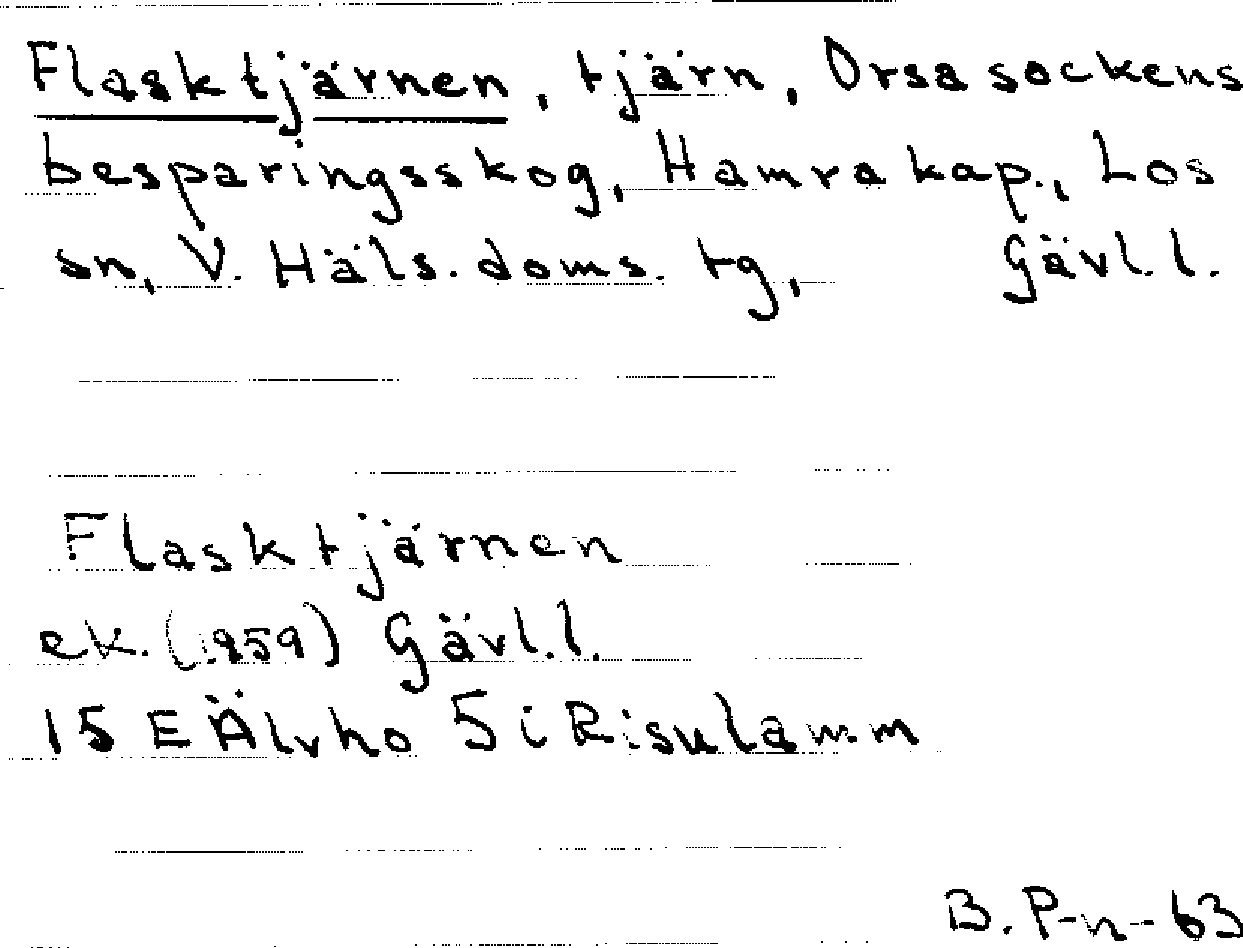 Flasktjärnen, tjärn, Orsa sockens
besparingsskog, Hamra kap., Los
sn, V. Häls. doms. tg, Gävl. l.
Flasktjärnen
ek. (1959) Gävl. l.
15 E Älvho 5 i Risulamm
B. P-n-63